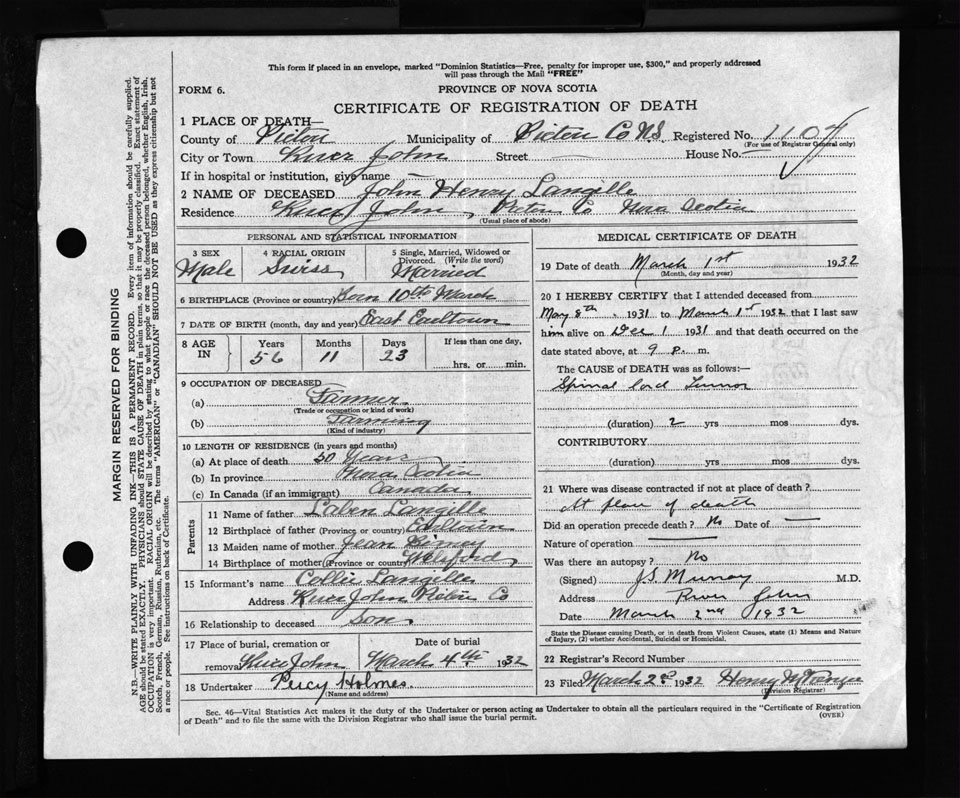 This form if placed in an envelope, marked "Dominion Statistics—Free, penalty for improper use, $300," and properly addressed
will pass through the Mail "FREE"
FORM 6.
PROVINCE OF NOVA SCOTIA
CERTIFICATE OF REGISTRATION OF DEATH
1 PLACE OF DEATH—
County of Pictou Municipality of Pictou Co NS. Registered No. 1104
(For use of Registrar General only)
City or Town River John Street House No.
If in hospital or institution, give name
2 NAME OF DECEASED John Henry Langille
Residence River John, Pictou Co Nova Scotia
(Usual place of abode)
PERSONAL AND STATISTICAL INFORMATION
3 SEX Male
4 RACIAL ORIGIN Swiss
5 Single, Married, Widowed or Divorced. (Write the word) Married
6 BIRTHPLACE (Province or country) Born 10th March
7 DATE OF BIRTH (month, day and year) East Earltown
8 AGE IN Years 56 Months 11 Days 23 If less than one day, hrs. or min.
9 OCCUPATION OF DECEASED
(a) Farmer
(Trade or occupation or kind of work)
(b) Farming
(Kind of industry)
10 LENGTH OF RESIDENCE (in years and months)
(a) At place of death 50 Years
(b) In province Nova Scotia
(c) In Canada (if an immigrant) Canada
Parents
11 Name of father Laben Langille
12 Birthplace of father (Province or country) Earltown
13 Maiden name of mother Jean
14 Birthplace of mother (Province or country)
15 Informant's name Collie Langille
Address River John Pictou Co
16 Relationship to deceased Son
17 Place of burial, cremation or removal River John
Date of burial March 4th 1932
18 Undertaker Percy Holmes.
(Name and address)
MEDICAL CERTIFICATE OF DEATH
19 Date of death March 1st 1932
(Month, day and year)
20 I HEREBY CERTIFY that I attended deceased from
May 8th 1931 to March 1st 1932 that I last saw
him alive on Dec 1 1931 and that death occurred on the
date stated above, at 9 P. m.
The CAUSE of DEATH was as follows:—
Spinal Cord Tumor
(duration) 2 yrs mos dys.
CONTRIBUTORY
(duration) yrs mos dys.
21 Where was disease contracted if not at place of death?
At place of death
Did an operation precede death? No Date of —
Nature of operation —
Was there an autopsy? No
(Signed) J S Murray M.D.
Address River John
Date March 2nd 1932
State the Disease causing Death, or in death from Violent Causes, state (1) Means and Nature
of Injury, (2) whether Accidental, Suicidal or Homicidal.
22 Registrar's Record Number
23 Filed March 2nd 1932 Henry
(Division Registrar)
Sec. 46—Vital Statistics Act makes it the duty of the Undertaker or person acting as Undertaker to obtain all the particulars required in the "Certificate of Registration
of Death" and to file the same with the Division Registrar who shall issue the burial permit.
(OVER)
MARGIN RESERVED FOR BINDING
N.B.—WRITE PLAINLY WITH UNFADING INK—THIS IS A PERMANENT RECORD. Every item of information should be carefully supplied.
AGE should be stated EXACTLY. PHYSICIANS should STATE CAUSE OF DEATH in plain terms, so that it may be properly classified. Exact statement of
OCCUPATION is very important. RACIAL ORIGIN will be described by stating to what people or race the deceased person belonged, whether English, Irish,
Scotch, French, German, Russian, Ruthenian, etc. The terms "AMERICAN" or "CANADIAN" SHOULD NOT BE USED as they express citizenship but not
a race or people. See instructions on back of Certificate.